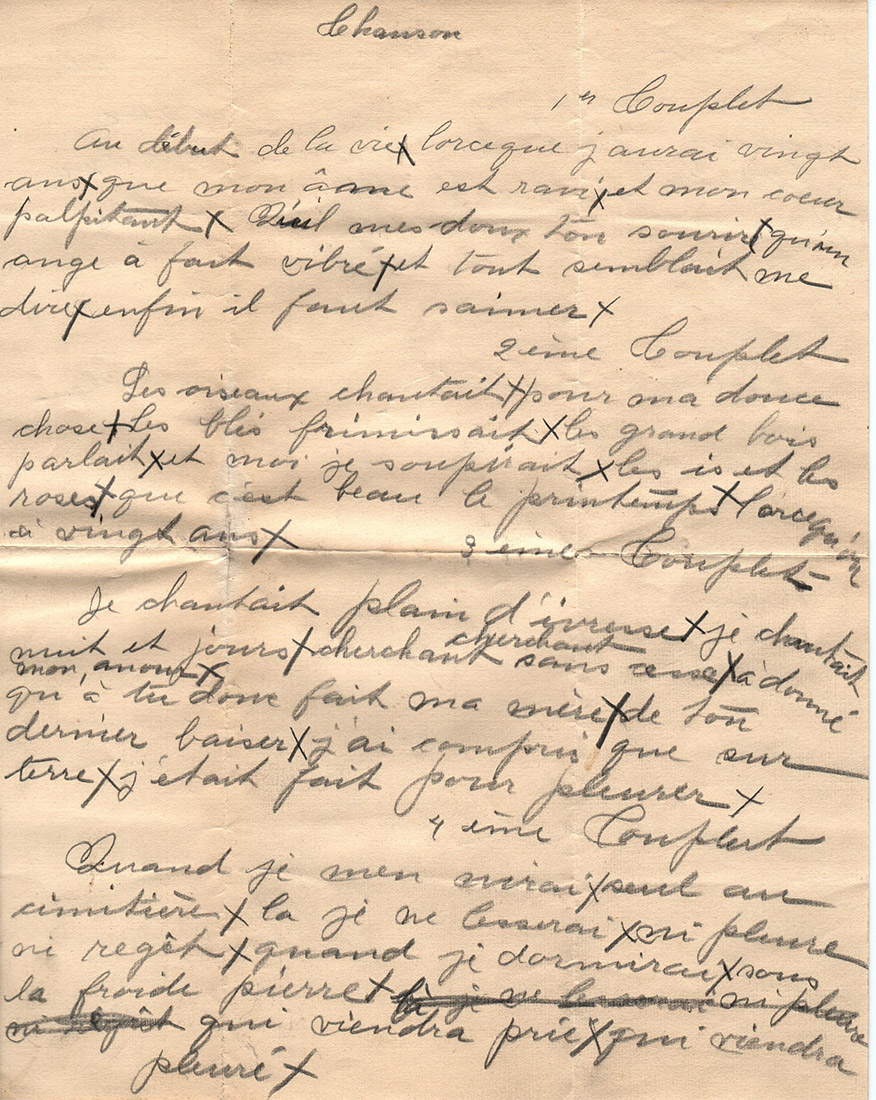 Chanson
1er Couplet
Au début de la vie x lorceque j'aurai vingt
ans x que mon âame est ravi x et mon coeur
palpitant x mes doux ton sourire x qu'un
ange à fait vibré x et tout semblait me
dire x enfin il faut saimer x
2ème Couplet
Les oiseaux chantait x pour ma douce
chose x les blés frimissait x les grand bois
parlait x et moi je soupirait x les is et les
roses x que c'est beau le printemps x lorcequ'on
à vingt ans x
3ème Couplet
Je chantait plain d'ivresse x je chantait
nuit et jours x cherchant cherchant sans cesse x à donné
mon amour x
qu'à tu donc fait ma mère x de ton
dernier baiser x j'ai compris que sur
terre x j'était fait pour pleurer x
4ème Couplert
Quand je men nirai x seul au
cimitière x la je ne lesserai x ni pleure
ni regêt x quand je dormirai x sous
la froide pierre x là je ne lesserai ni pleure
ni regêt qui viendra prié x qui viendra
pleuré x